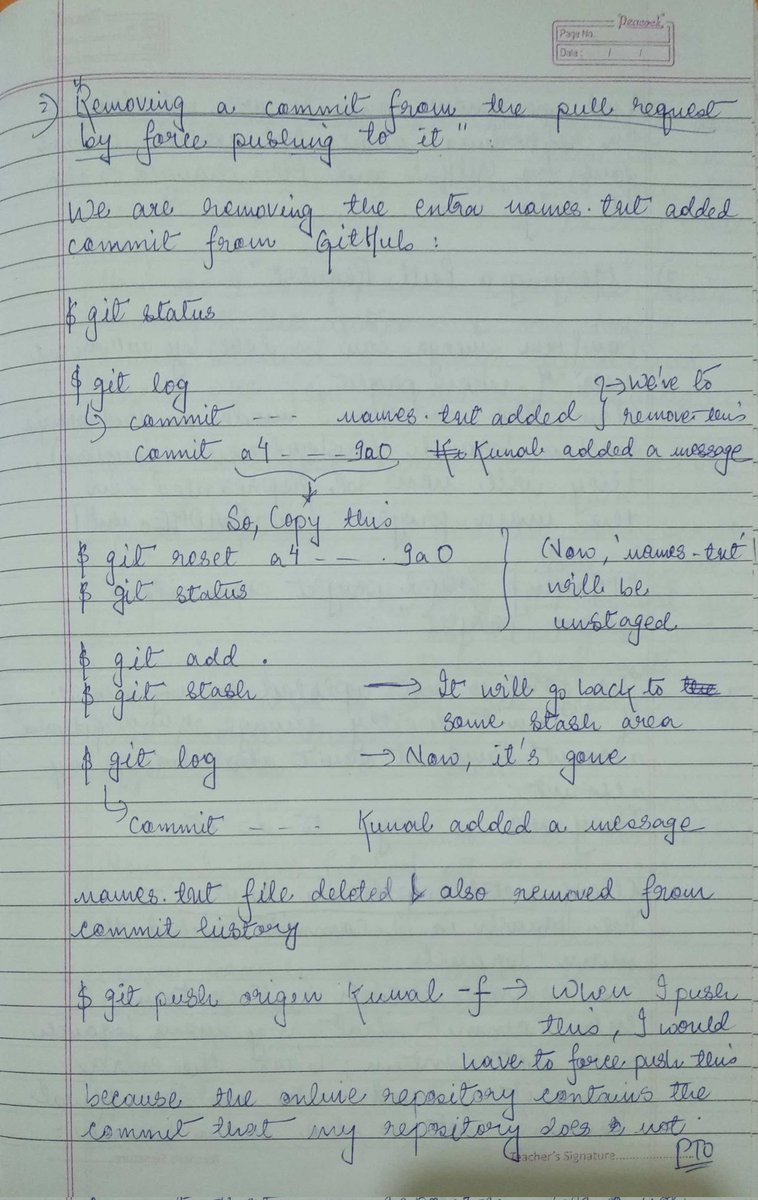 Peacock
Page No.
Date : / /
⇒) "Removing a commit from the pull request
by force pushing to it" :
We are removing the extra names.txt added
commit from GitHub :
$ git status
$ git log
↳ commit --- names.txt added } → We've to remove this
commit a4 --- 9a0 Kunal added a message
↓
So, Copy this
$ git reset a4 --- . 9a0
$ git status
(Now, 'names.txt'
will be
unstaged
$ git add .
$ git stash → It will go back to
some stash area
$ git log → Now, it's gone
↳ commit ---- Kunal added a message
names.txt file deleted & also removed from
commit history
$ git push origin Kunal -f → When I push
this, I would
have to force push this
because the online repository contains the
commit that my repository does not.
PTO
Teacher's Signature